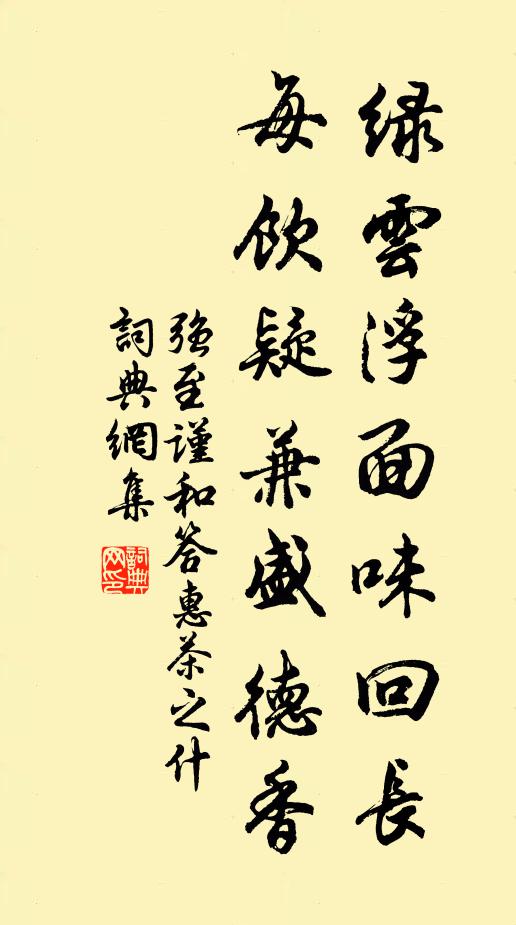 綠雲浮面味回長
每飲疑兼盛德香
強至謹和答惠茶之什
詞典網集
詞典
网印